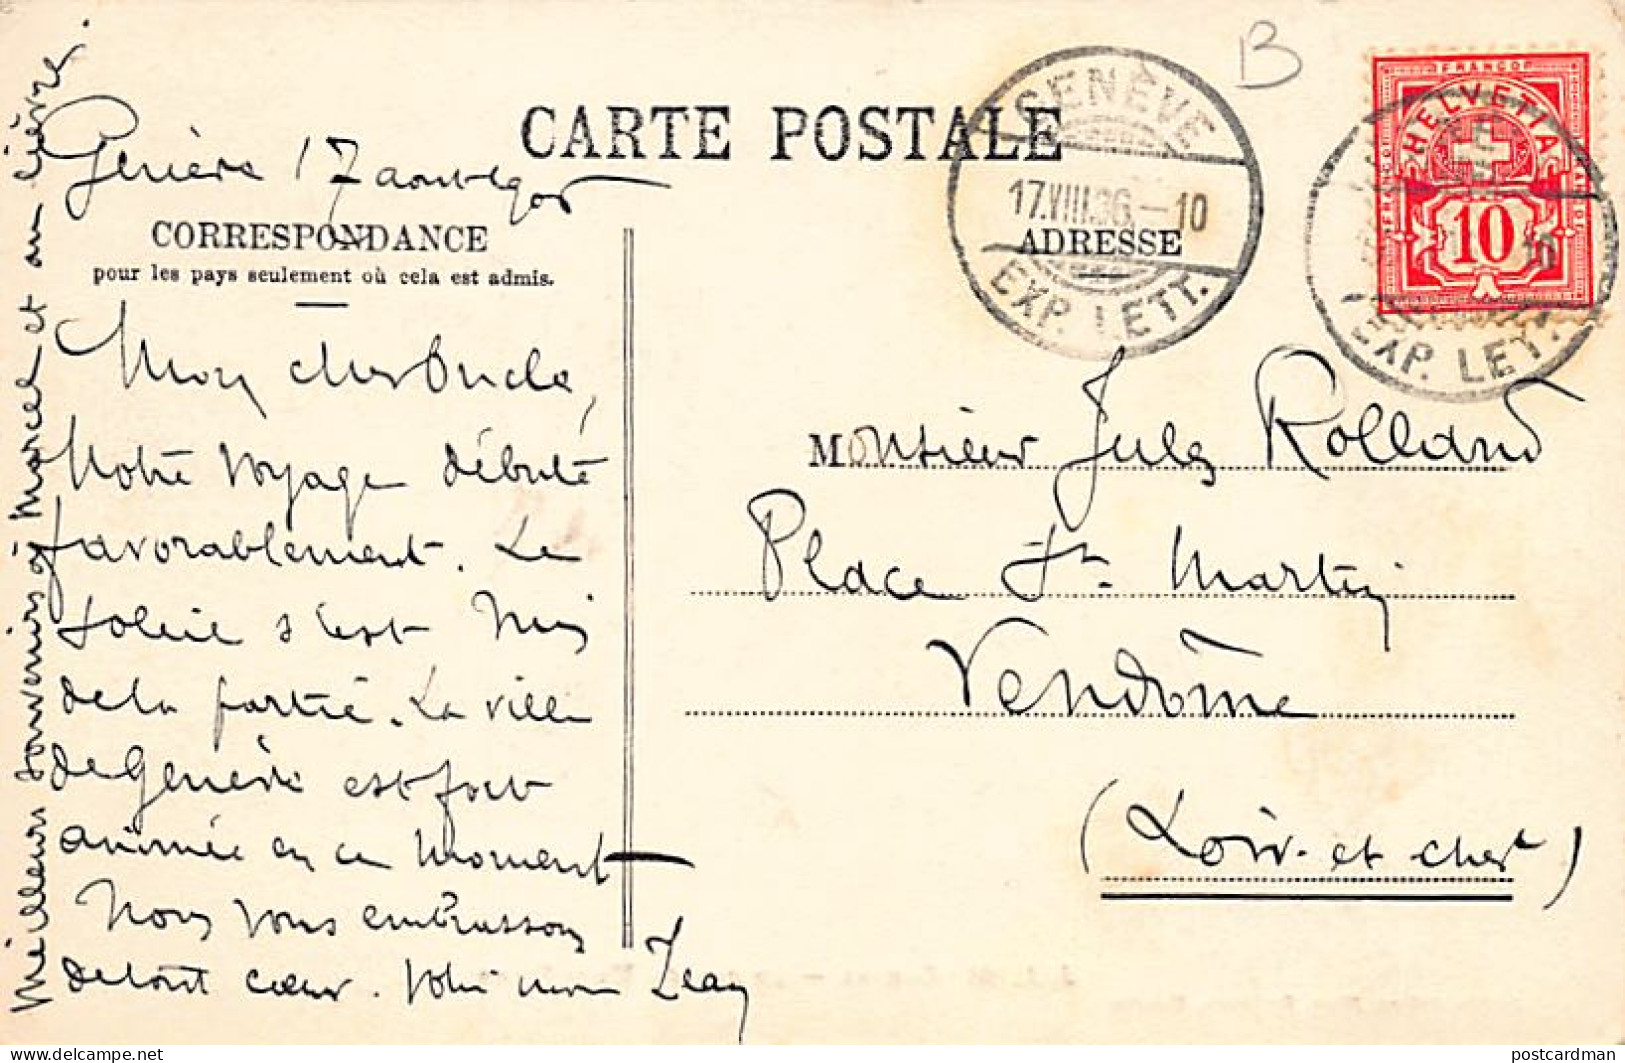 B
CARTE POSTALE
Genève 17 aout 1906
CORRESPONDANCE
pour les pays seulement où cela est admis.
ADRESSE
GENÈVE
17.VIII.06.-10
EXP. LETT.
FRANCO
HELVETIA
10
EXP. LET.
Mon cher Oncle,
Notre voyage débute
favorablement. Le
soleil s'est mis
de la partie. La ville
de Genève est fort
animée en ce moment
Nous vous embrassons
de tout cœur. Votre neveu Jean
Meilleurs souvenirs à Marcel et au lièvre.
Monsieur Jules Rolland
Place St. Martin
Vendôme
(Loir-et-Cher)
postcardman